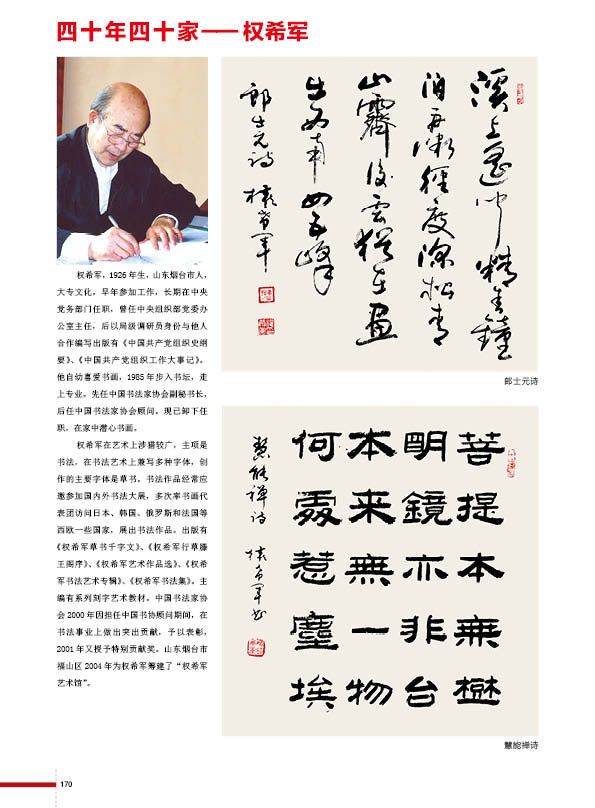 四十年四十家——权希军
权希军，1926年生，山东烟台市人，
大专文化，早年参加工作，长期在中央
党务部门任职，曾任中央组织部党委办
公室主任，后以局级调研员身份与他人
合作编写出版有《中国共产党组织史纲
要》、《中国共产党组织工作大事记》。
他自幼喜爱书画，1985年步入书坛，走
上专业。先任中国书法家协会副秘书长，
后任中国书法家协会顾问。现已卸下任
职，在家中潜心书画。
权希军在艺术上涉猎较广，主项是
书法，在书法艺术上兼写多种字体，创
作的主要字体是草书。书法作品经常应
邀参加国内外书法大展，多次率书画代
表团访问日本、韩国、俄罗斯和法国等
西欧一些国家，展出书法作品。出版有
《权希军草书千字文》、《权希军行草滕
王阁序》、《权希军艺术作品选》、《权希
军书法艺术专辑》、《权希军书法集》。主
编有系列刻字艺术教材。中国书法家协
会2000年因担任中国书协顾问期间，在
书法事业上做出突出贡献，予以表彰，
2001年又授予特别贡献奖。山东烟台市
福山区2004年为权希军筹建了“权希军
艺术馆”。
溪上遥闻精舍鐘
泊舟微徑度深松青
山霽後雲猶在畫
出西南四五峰
郎士元詩 權希軍
郎士元诗
菩提本無樹
明鏡亦非台
本来無一物
何處惹塵埃
慧能禅诗 權希軍书
慧能禅诗
170